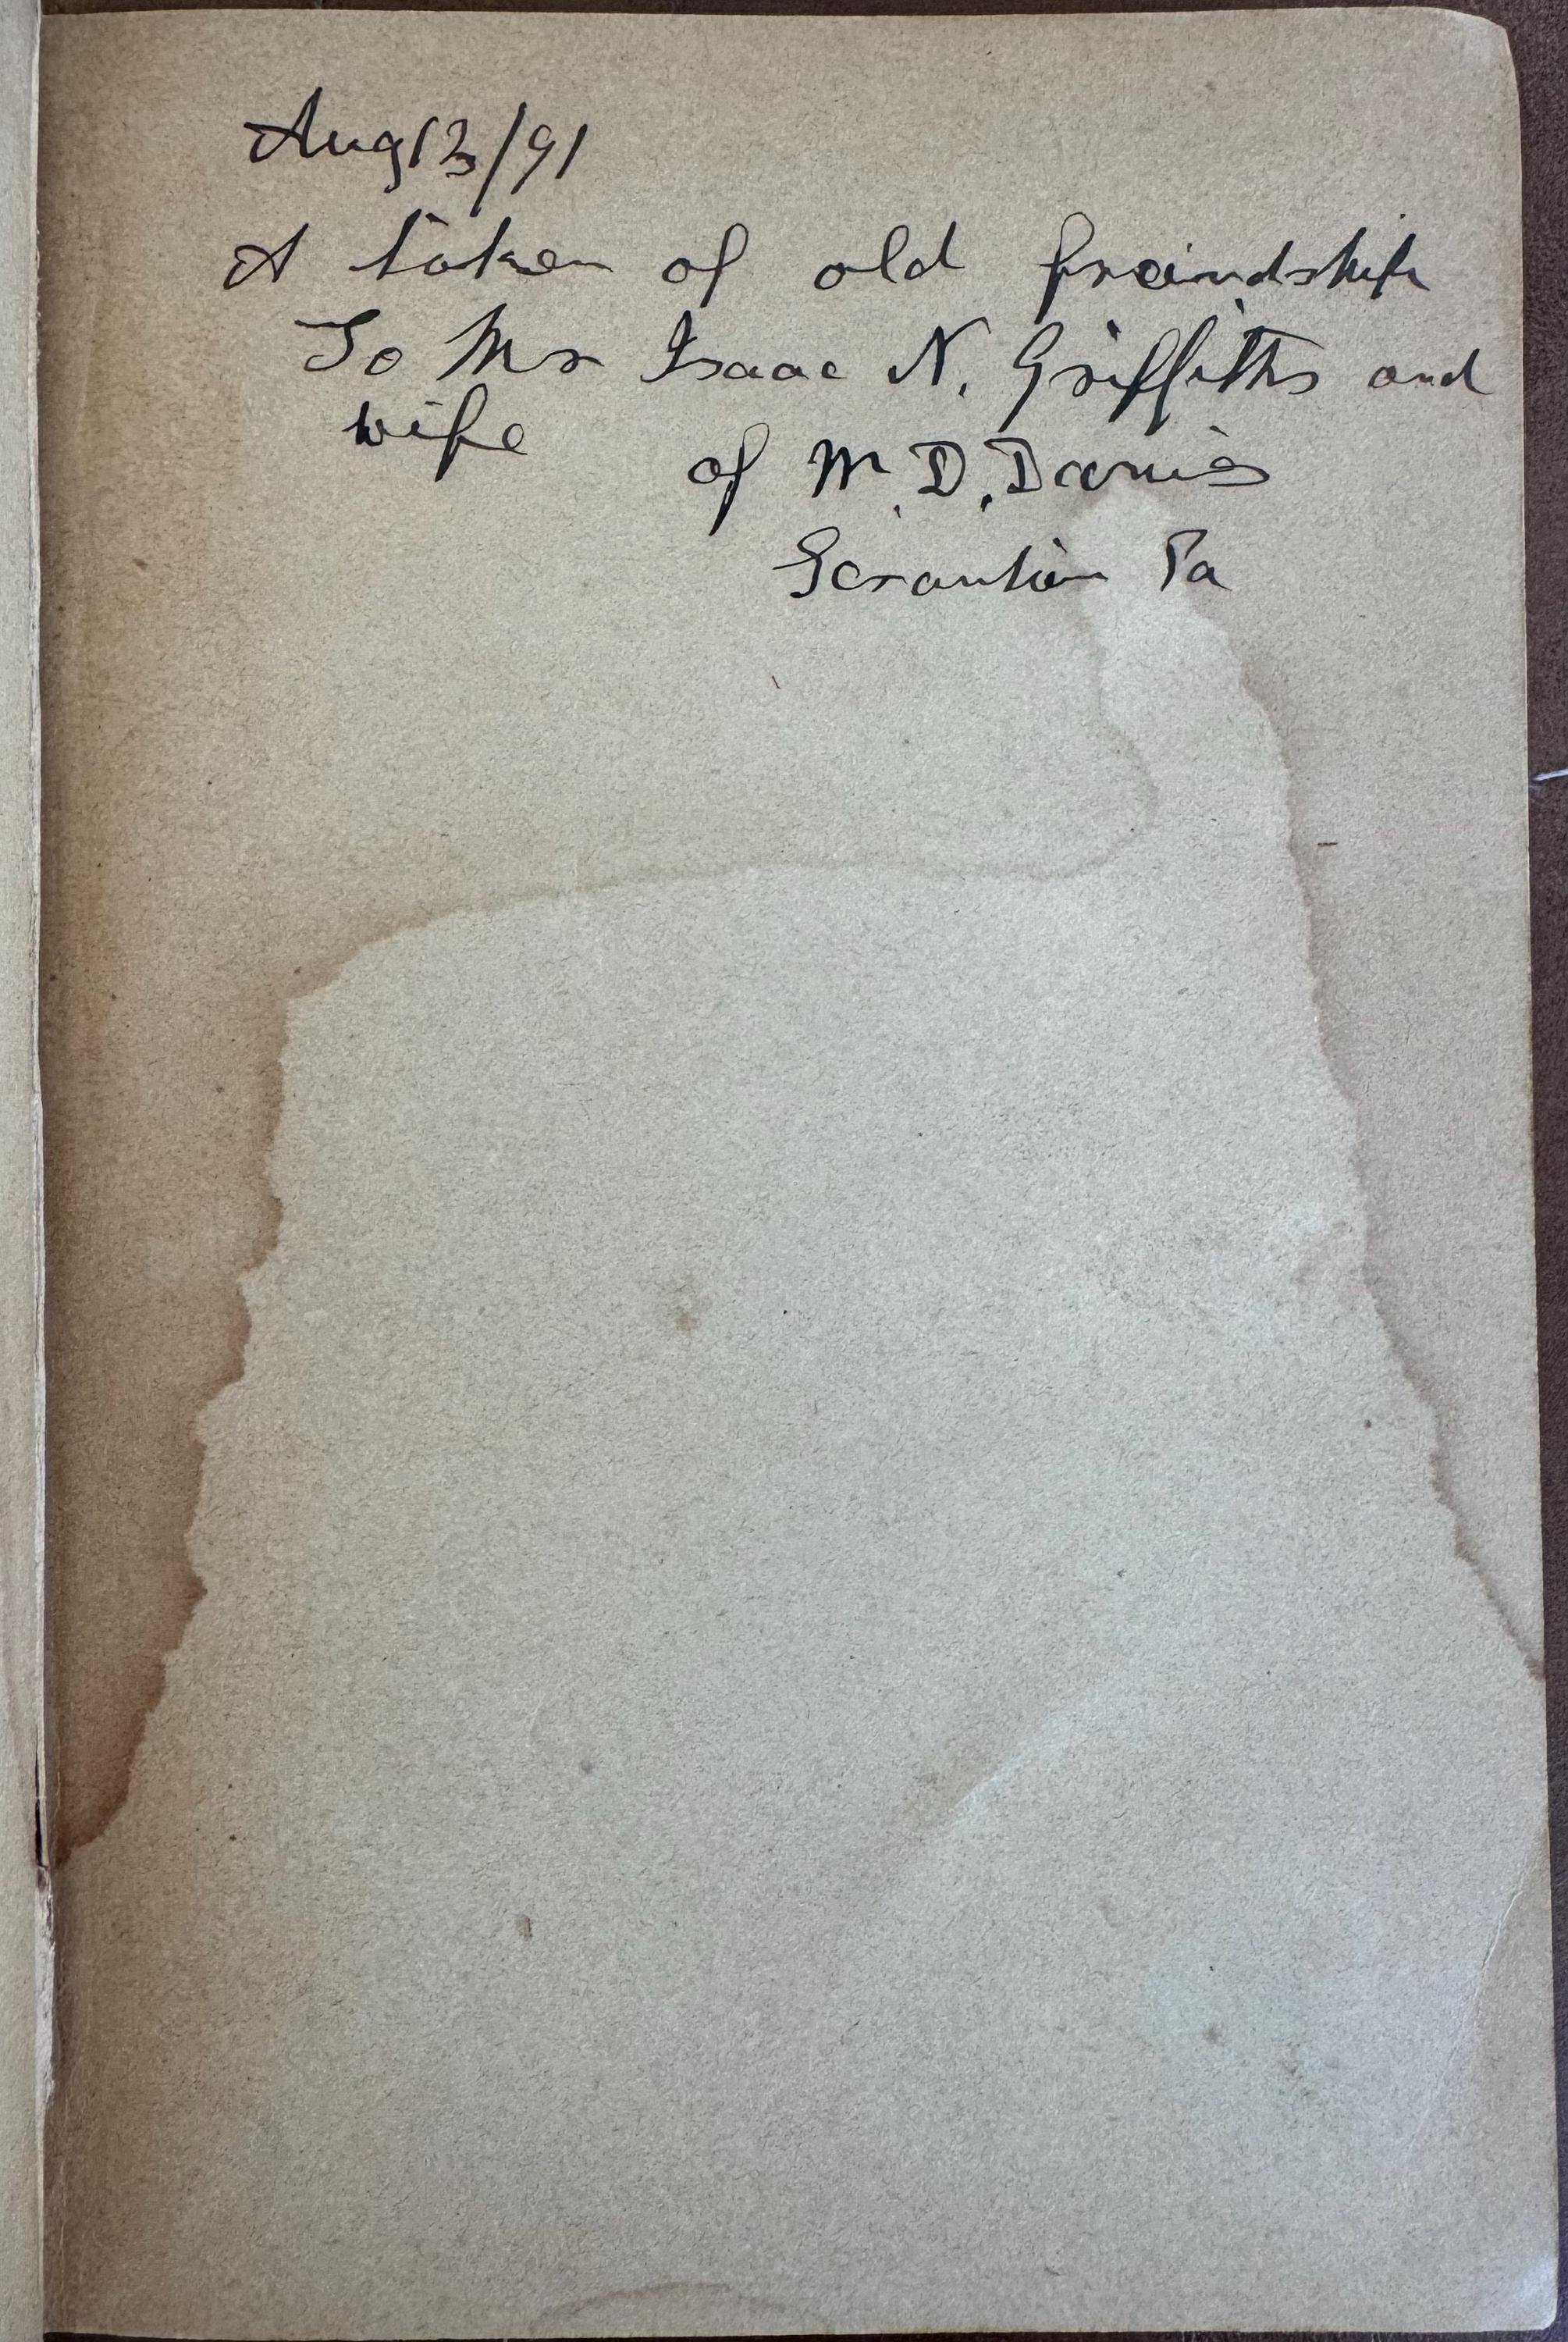 Aug 13/91
A token of old freindship
To Mr Isaac N. Griffiths and
wife
of M. D. Davies
Scranton Pa